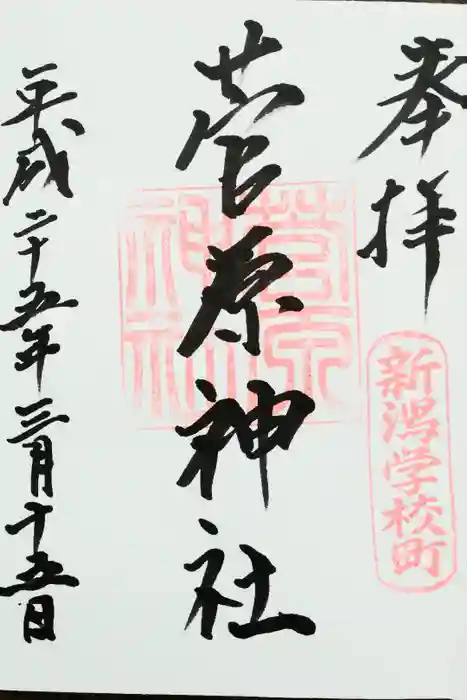 奉拝
新潟学校町
菅原神社
菅原神社
平成二十五年三月十五日